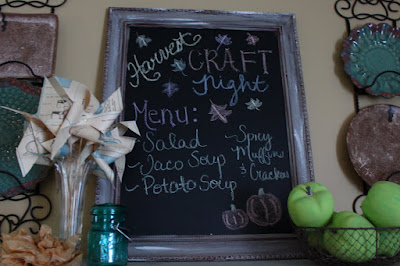 Harvest
CRAFT
Night
Menu:
~Salad
~Taco Soup
~Potato Soup
~Spicy
Muffins
&
Crackers